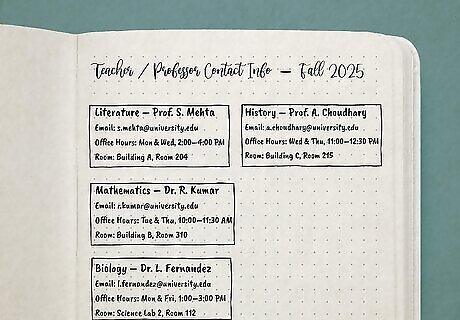 Teacher / Professor Contact Info — Fall 2025
Literature — Prof. S. Mehta
Email: s.mehta@university.edu
Office Hours: Mon & Wed, 2:00–4:00 PM
Room: Building A, Room 204
History — Prof. A. Choudhary
Email: a.choudhary@university.edu
Office Hours: Wed & Thu, 11:00–12:30 PM
Room: Building C, Room 215
Mathematics — Dr. R. Kumar
Email: r.kumar@university.edu
Office Hours: Tue & Thu, 10:00–11:30 AM
Room: Building B, Room 310
Biology — Dr. L. Fernandez
Email: l.fernandez@university.edu
Office Hours: Mon & Fri, 1:00–3:00 PM
Room: Science Lab 2, Room 112